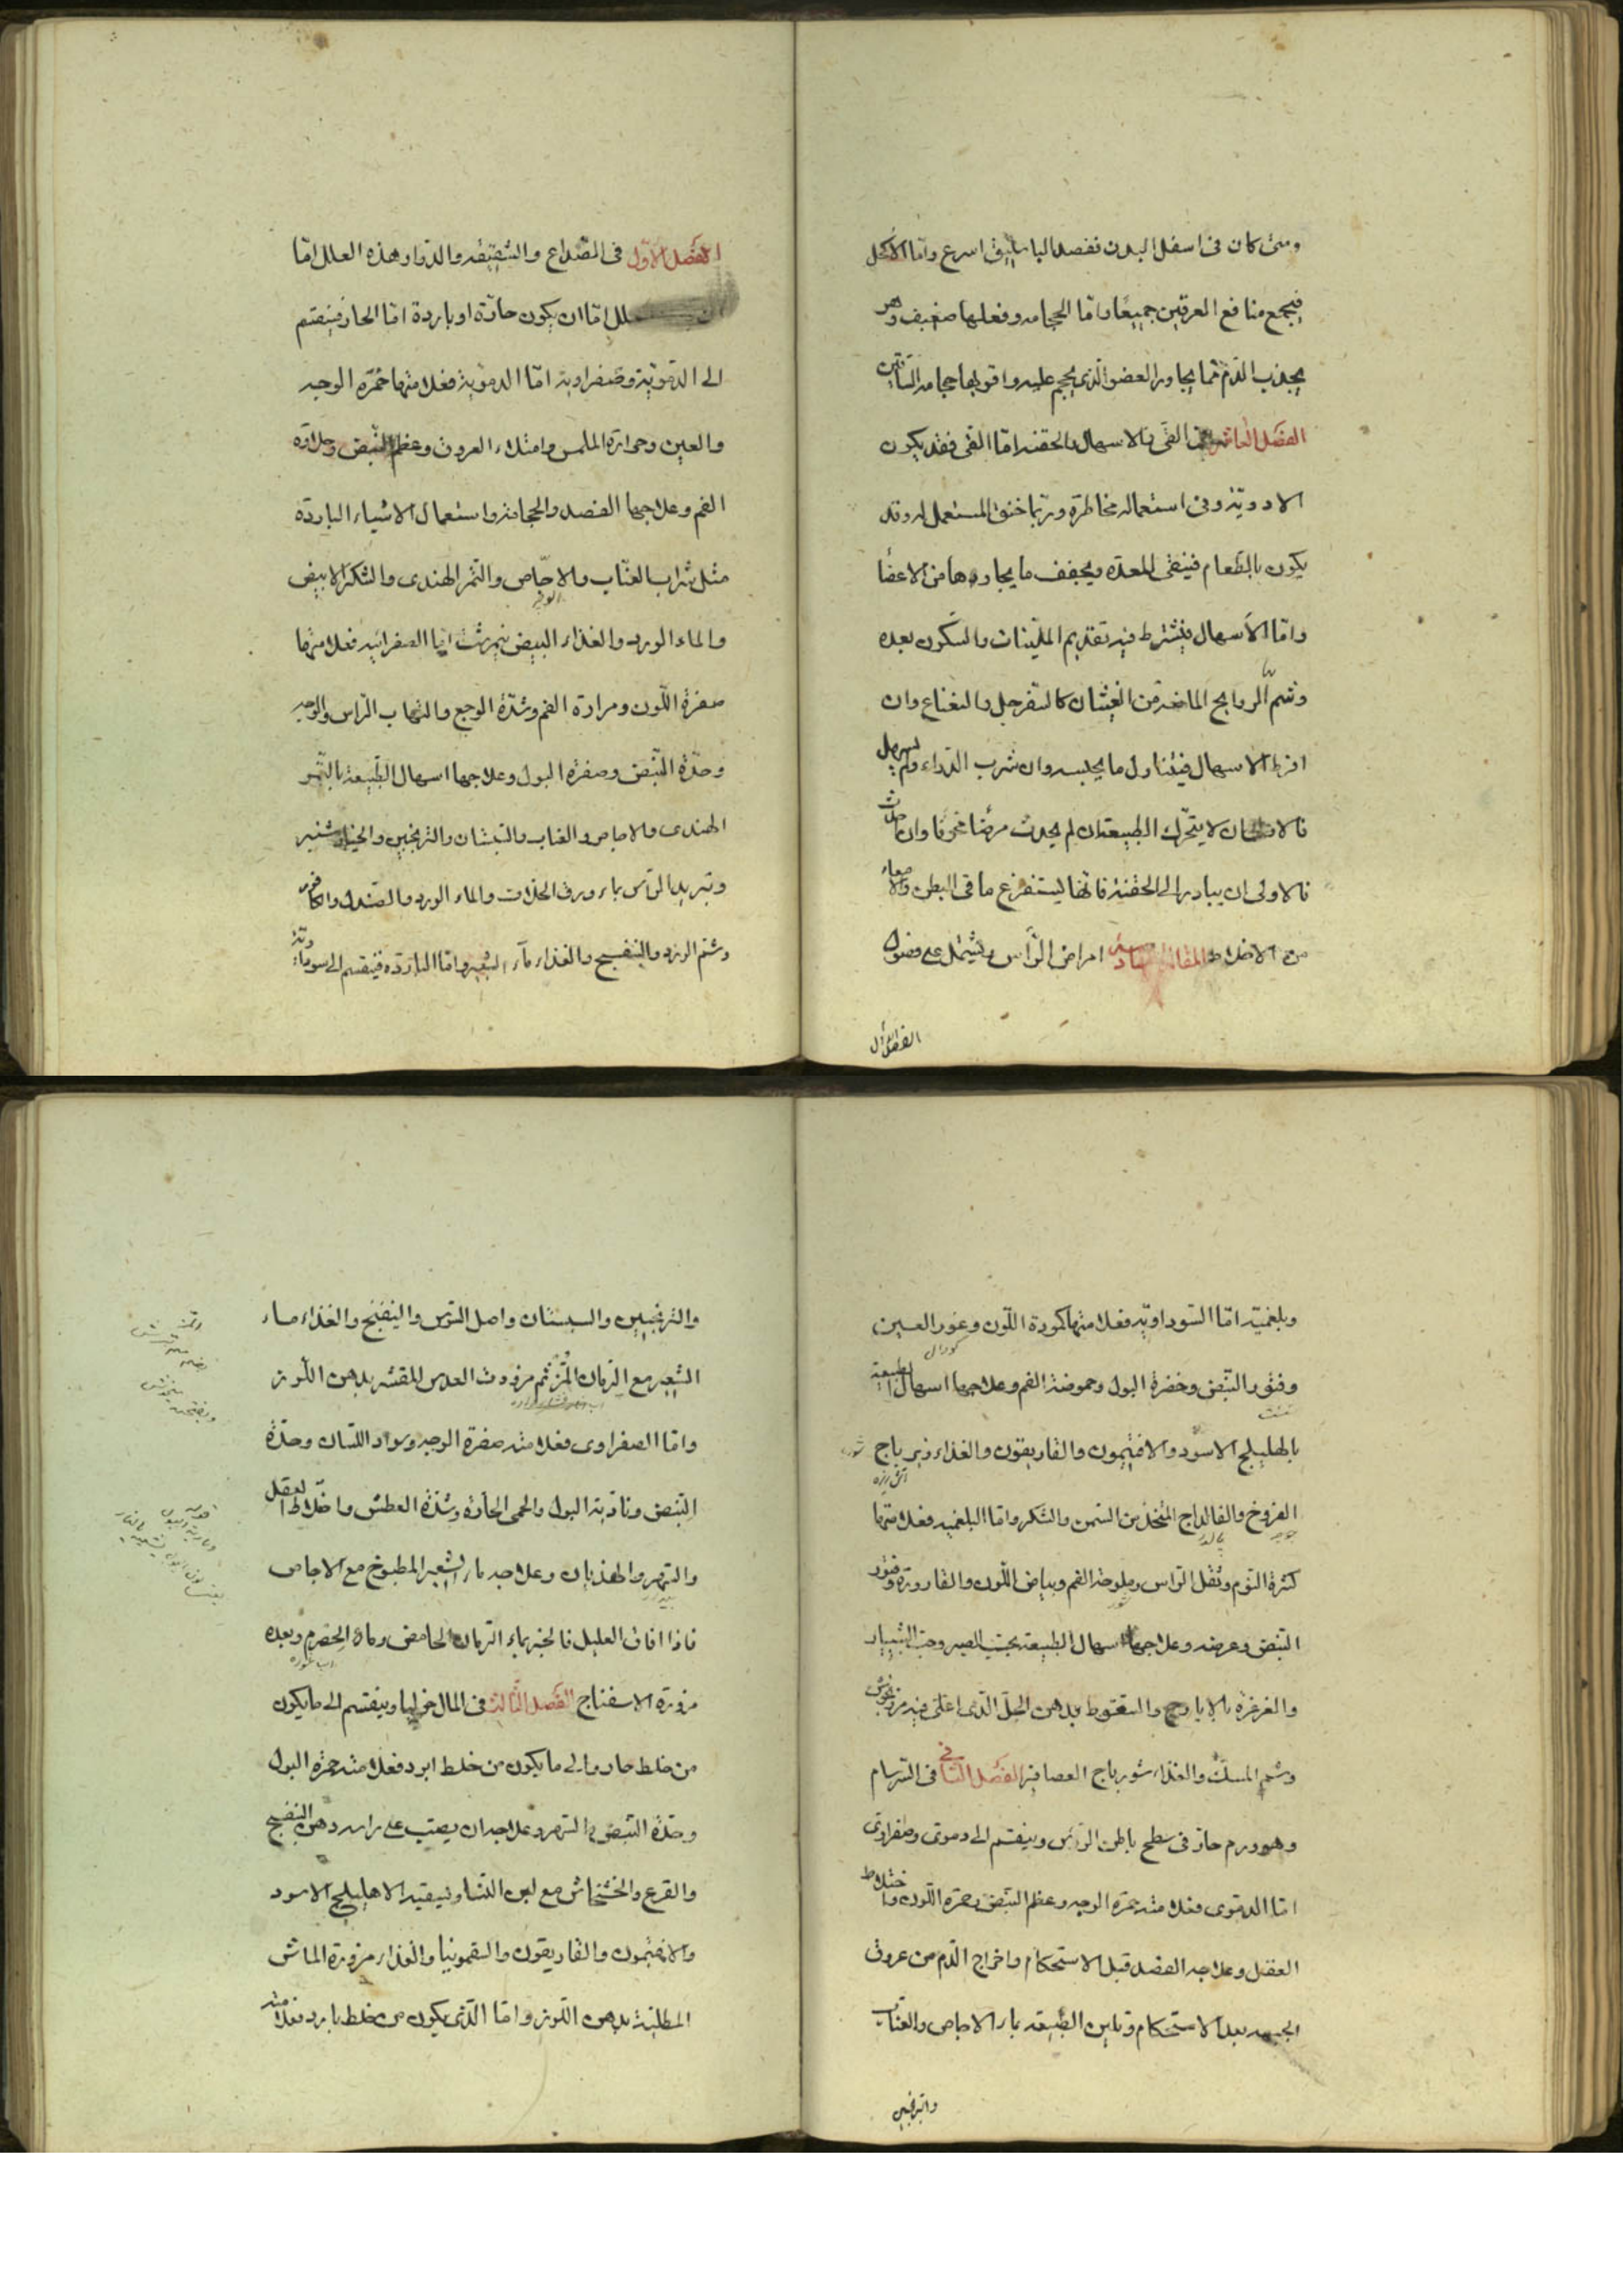 ومتى كان فى اسفل البدن ففصد الباسليق اسرع وامّا الأكحل
فيجمع منافع العرقين جميعًا وامّا الحجامه وفعلها ضعيف وهو
يجذب الدّم ممّا يجاور العضو الذى يحجم عليه واقويها حجامه الساقين
الفصل العاشر فى القىّ والاسهال والحقنه امّا القى فقد يكون
الادويّة وفى استعماله مخاطرة وربّما خنق المستعمل له وقد
يكون بالطّعام فينقى المعدة ويجفف ما يجاورها من الاعضا
وامّا الأسهال فيشترط فيه تقديم المليّنات والسكون بعده
وشمّ الروايح المانعة من الغثيان كالسّفرجل والنعناع وان
افرط الاسهال فيتناول ما يحبسه وان شرب الدّواء ولم يسهل
فالا ان لا يتحرّك الطبيعة ان لم يحدث مرضًا مخوفا وان حدث
فالاولى ان يبادر الى الحقنة فانّها ليستفرغ ما فى البطن والامعاء
من الاخلاط المقالة السادسة امراض الرّأس ويشتمل على فصول
الفصل الأول
الفصل الأوّل فى الصّداع والشّقيقه والدّوار وهذه العلل امّا
علل امّا ان يكون حارّة او باردة امّا الحار فينقسم
الى الدمويّة وصفراوية امّا الدمويّة فعلامتها حمرّة الوجه
والعين وحرارة الملمس وامتلاء العروق وعظم النّبض وحلاوة
الفم وعلاجها الفصد والحجامة واستعمال الاشياء الباردة
مثل شراب العنّاب والاجّاص والتّمر الهندى والسّكر الابيض
والماء الورد والغذاء البيض نيمرشت امّا الصفرائيه فعلامتها
صفرة اللّون ومرارة الفم وشدّة الوجع والتهاب الرّاس والوجه
وحدّة النّبض وصفرة البول وعلاجها اسهال الطّبيعة بالتّمر
الهندى والاجاص والعناب والسّبستان والترنجبين والخيارشنبر
وتبريد الرّأس بماء ورق الخلاف والماء الورد والصّندل والكافور
وشم الورد والبنفسج والغذاء مآء الشّعير وامّا الباردة فينقسم الى سوداويّة
وبلغميّه امّا السّوداويّه فعلامتها كمودة اللّون وغور العين
وفتور النّبض وخضرة البول وحموضة الفم وعلاجها اسهال الطبيعة
بالهليلج الاسود والافتيمون والغاريقون والغذاء زيرباج
الفروخ والفالوداج المتّخذ من السّمن والسّكر وامّا البلغميه فعلامتها
كثرة النّوم وثقل الرّاس وملوحة الفم وبياض اللّون والقارورة وفتور
النّبض وعرضه وعلاجها اسهال الطّبيعة بحبّ الصبر وحبّ الشّبيار
والغرغرة بالايارج والسّعوط بدهن الخلّ الّذى اغلى فيه مرزنجوش
وشم المسك والغذاء شورباج العصافير الفصل الثّانى فى السّرسام
وهو ورم حارّ فى سطح باطن الرّأس وينقسم الى دموىّ وصفراوىّ
امّا الدموى فعلامته حمرة الوجه وعظم النّبض وحمرة اللّون واختلاط
العقل وعلاجه الفصد قبل الاستحكام واخراج الدّم من عروق
الجبهه بعد الاستحكام وتليين الطّبيعه بماء الاجاص والعنّاب
والترنجبين
والترنجبين والسبستان واصل السّوس والبنفسج والغذاء ماء
الشّعير مع الرّمان المزّ ثم مزورة العدس المقشّر بدهن اللّوز
وامّا الصفراوى فعلامته صفرة الوجه وسواد اللسان وحدّة
النّبض وناريّة البول والحمى الحارّة وشدّة العطش واختلاط العقل
والسّهر والهذيان وعلاجه ماء الشّعير المطبوخ مع الاجاص
فاذا افاق العليل فالخبز بماء الرّمان الحامض وماء الحصرم وبعده
مزورة الاسفناج الفصل الثّالث فى المالنخوليا وينقسم الى ما يكون
من خلط حار والى ما يكون من خلط ابرد فعلامته حمرة البول
وحدّة النّبض والسّهر وعلاجه ان يصبّ على راسه دهن البنفسج
والقرع والخشخاش مع لبن النّساء ويسقيه الاهليلج الاسود
والافتيمون والغاريقون والسقمونيا والغذاء مزورة الماش
المطلبّة بدهن اللّوز وامّا الّذى يكون من خلط بارد فعلامته